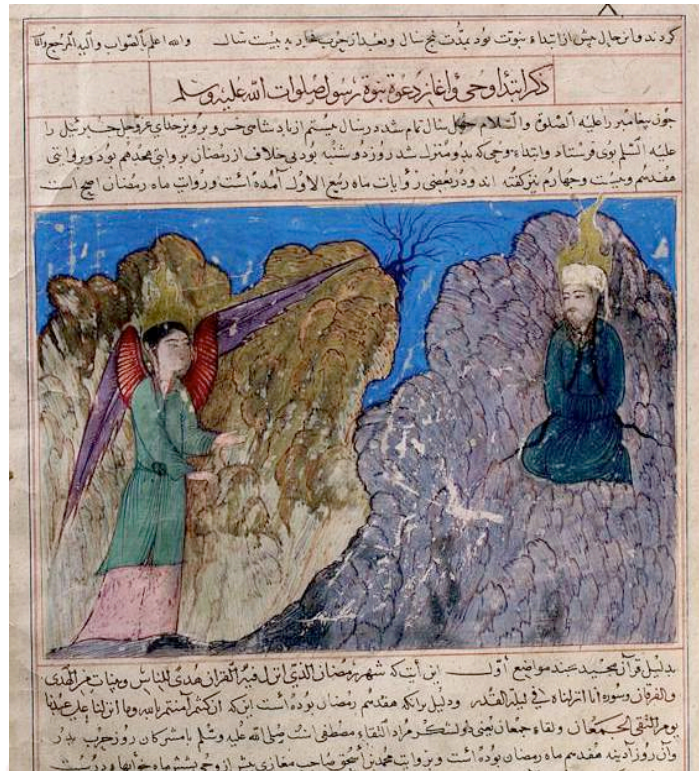 کردند و این حال پیش از ابتداء نبوت بود بمدت پنج سال و بعد از حرب به بیست سال والله اعلم بالصواب والیه المرجع
ذکر ابتداء وحی و آغاز دعوة نبوة رسول صلوات الله علیه وسلم
چون پیغامبر را علیه الصلوة والسلام چهل سال تمام شد در سال بیستم از پادشاهی خسرو پرویز خدای عز وجل جبرئیل را
علیه السلم بوی فرستاد و ابتداء وحی که بدو منزل شد روز دوشنبه بود بی خلاف از رمضان بروایتی هجدهم بود و بروایتی
هفدهم و بیست و چهارم نیز گفته اند و در بعضی روایات ماه ربیع الاول آمده است و روایت ماه رمضان اصح است
بدلیل قرآن مجید بچند مواضع اول این آیت که شهر رمضان الذی انزل فیه القرآن هدی للناس وبینات من الهدی
والفرقان وسوره انا انزلناه فی لیلة القدر ودلیل برانکه هفدهم رمضان بوده است این که ان کنتم آمنتم بالله وما انزلنا علی عبدنا
یوم التقی الجمعان ولقاء جمعان یعنی دو لشکر مراد التقاء مصطفی است صلی الله علیه وسلم با مشرکان روز حرب بدر
و آن روز آدینه هفدهم ماه رمضان بوده است و بروایت محمد بن اسحق صاحب مغازی پیش از وحی پیغامبر خوابها درست